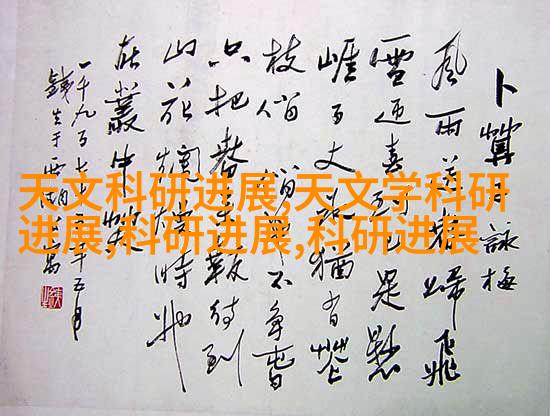 天文科研进展,天文学科研
进展,科研进展,科研进展
卜算子 詠梅
風雨送春歸飛
雪迎春到已是懸
崖百丈冰猶有花
枝俏俏也不爭春
只把春來報待到
山花爛熳時她
在叢中笑
一千九百七十年五月